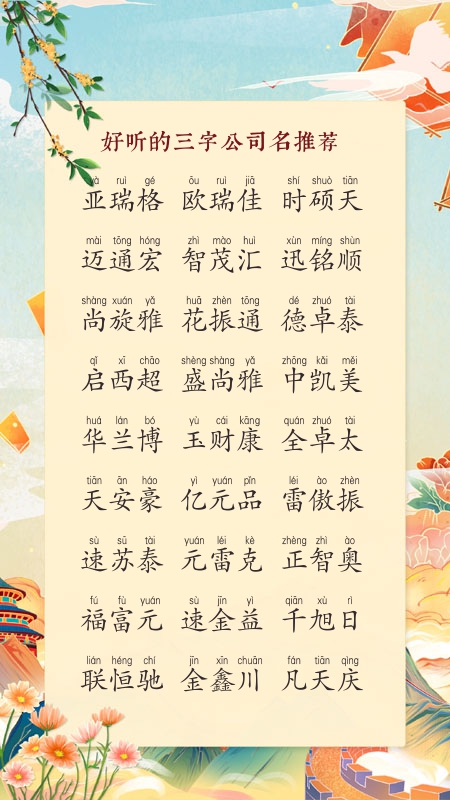 好听的三字公司名推荐
yà ruì gé ōu ruì jiā shí shuò tiān
亚瑞格 欧瑞佳 时硕天
mài tōng hóng zhì mào huì xùn míng shùn
迈通宏 智茂汇 迅铭顺
shàng xuán yǎ huā zhèn tōng dé zhuó tài
尚旋雅 花振通 德卓泰
qǐ xī chāo shèng shàng yǎ zhōng kǎi měi
启西超 盛尚雅 中凯美
huá lán bó yù cái kāng quán zhuó tài
华兰博 玉财康 全卓太
tiān ān háo yì yuán pǐn léi ào zhèn
天安豪 亿元品 雷傲振
sù sū tài yuán léi kè zhèng zhì ào
速苏泰 元雷克 正智奥
fú fù yuán sù jīn yì qiān xù rì
福富元 速金益 千旭日
lián héng chí jīn xīn chuān fán tiān qìng
联恒驰 金鑫川 凡天庆